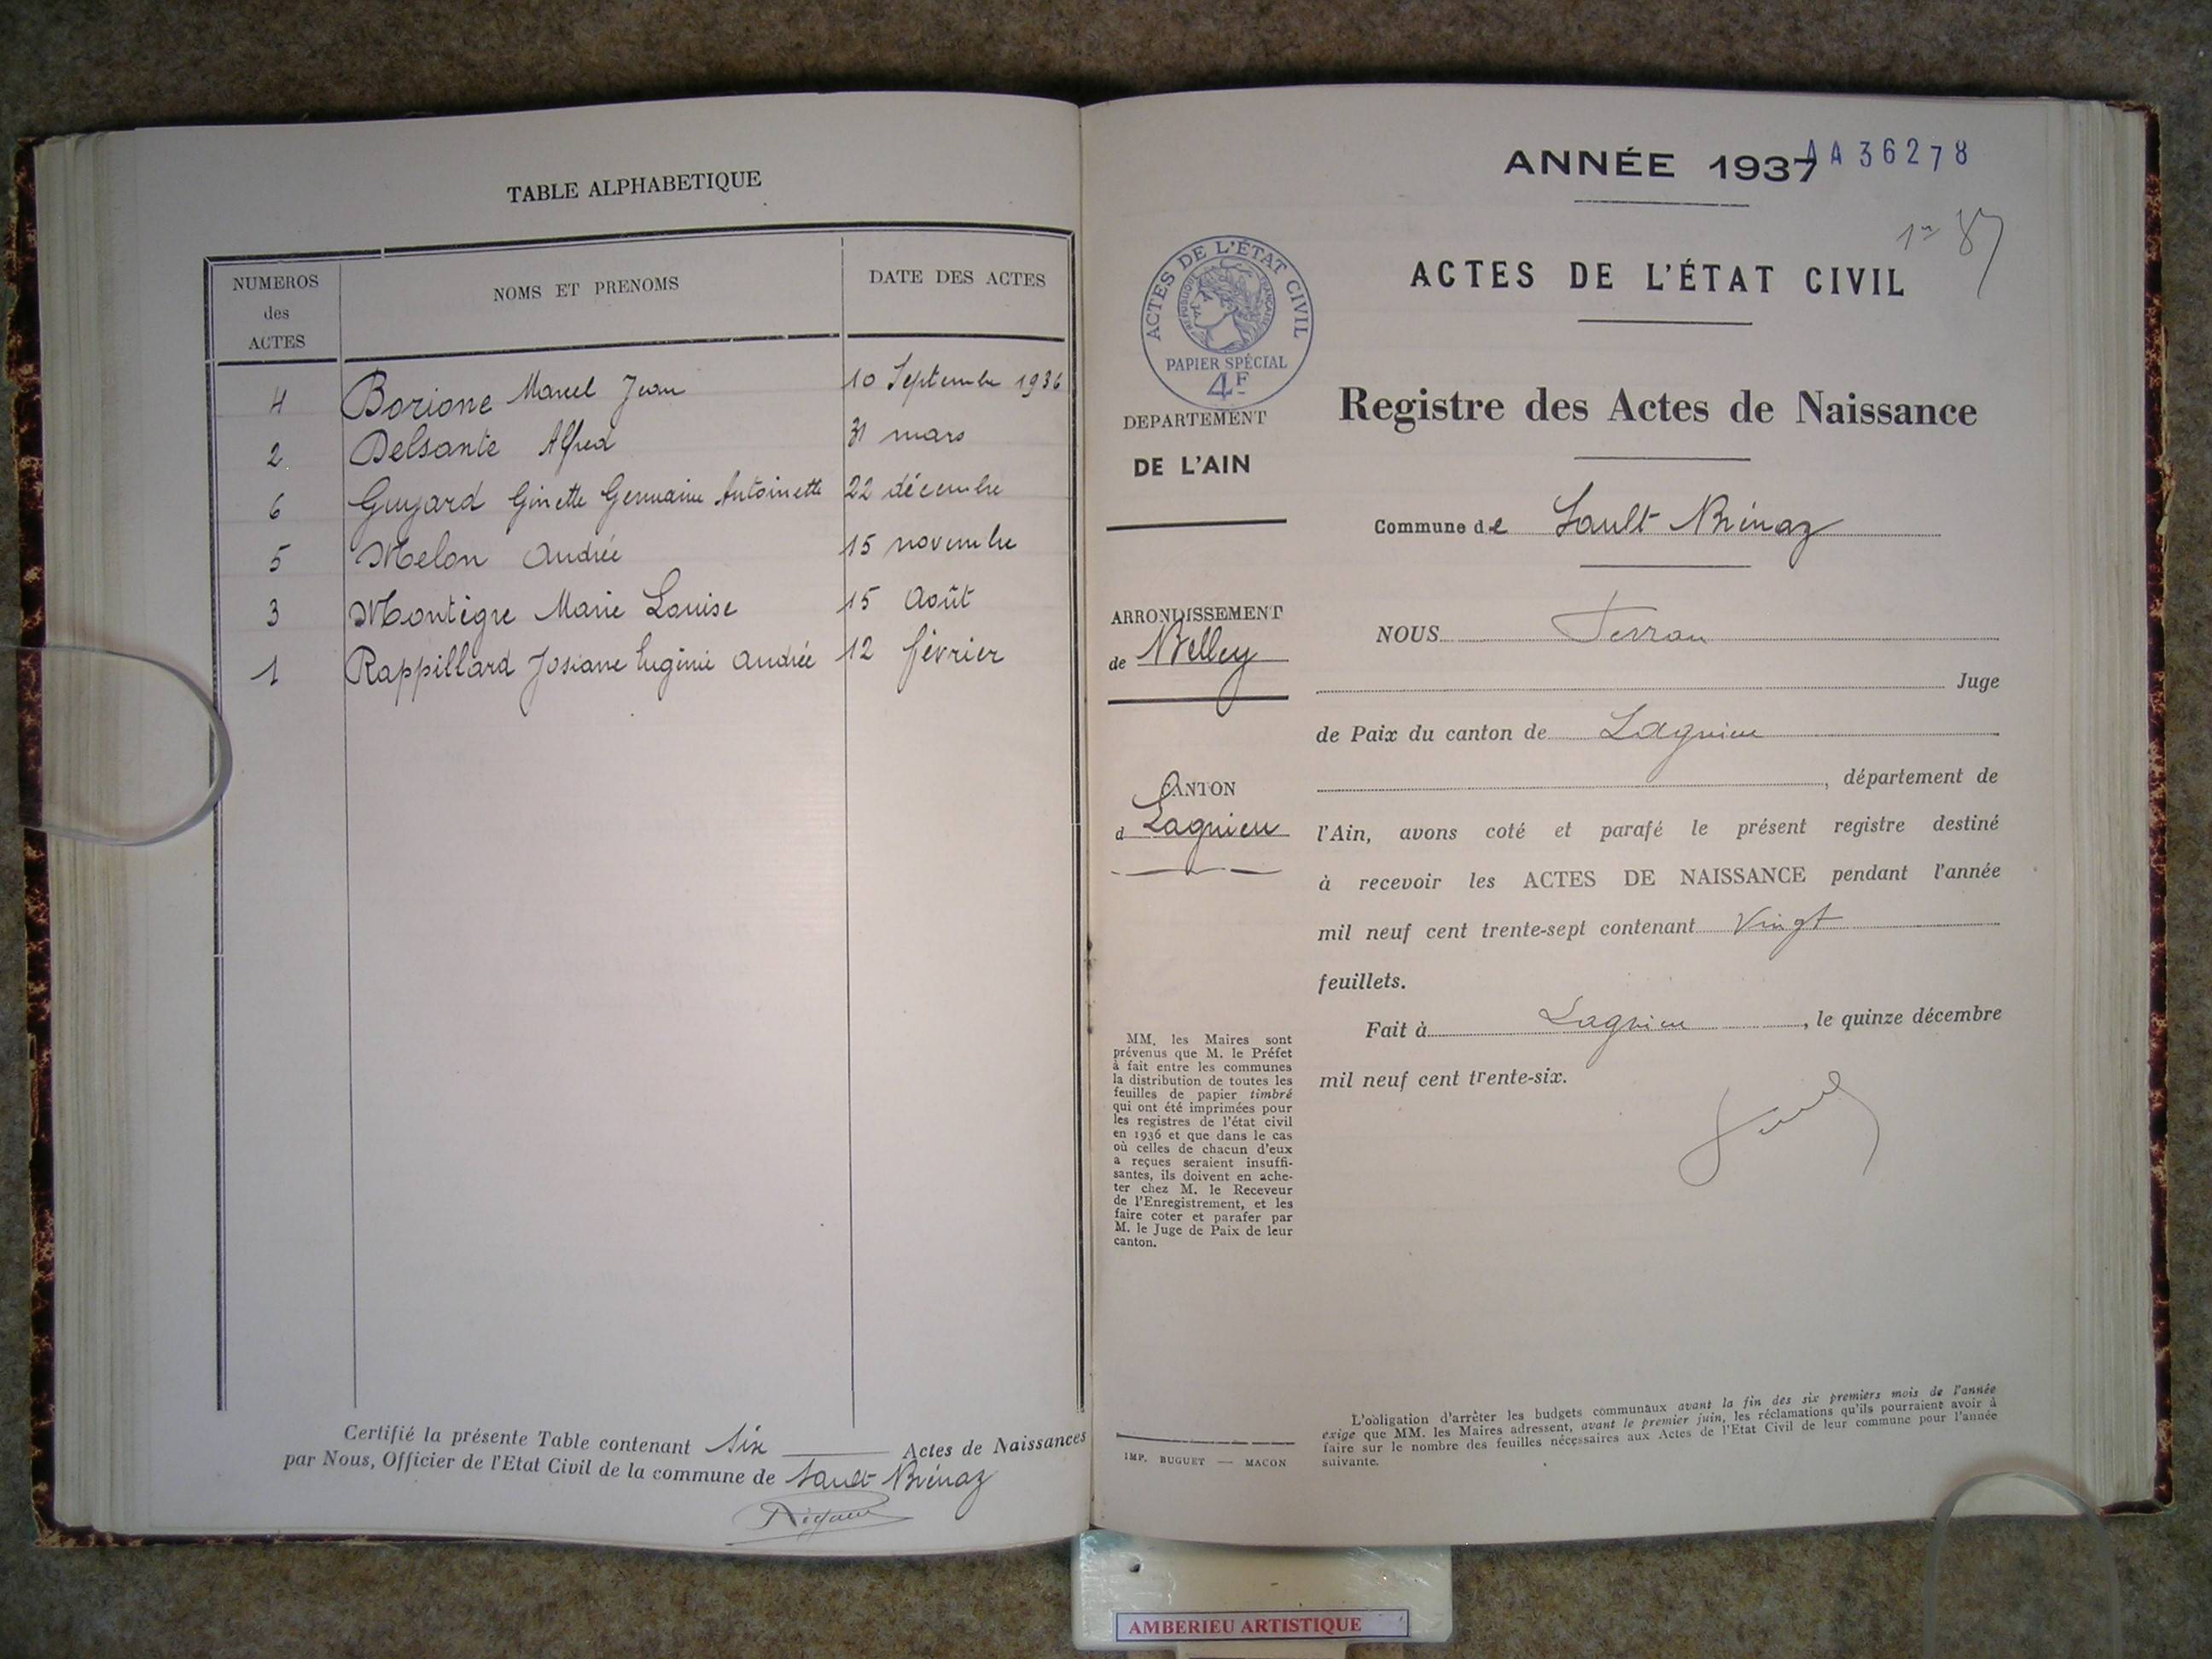 TABLE ALPHABETIQUE
NUMEROS
des
ACTES
NOMS ET PRENOMS
DATE DES ACTES
4 Borione Marcel Jean 10 Septembre 1936
2 Delsante Alfred 31 mars
6 Guyard Ginette Germaine Antoinette 22 décembre
5 Melon Andrée 15 novembre
3 Montègre Marie Louise 15 Août
1 Rappillard Josiane Eugénie Andrée 12 février
Certifié la présente Table contenant Six Actes de Naissances
par Nous, Officier de l'Etat Civil de la commune de Sault-Brénaz
ANNÉE 1937
AA36278
ACTES DE L'ÉTAT CIVIL
ACTES DE L'ÉTAT CIVIL
RÉPUBLIQUE FRANÇAISE
PAPIER SPÉCIAL
4F
DEPARTEMENT
DE L'AIN
ARRONDISSEMENT
de Belley
CANTON
d Lagnieu
MM. les Maires sont
prévenus que M. le Préfet
à fait entre les communes
la distribution de toutes les
feuilles de papier timbré
qui ont été imprimées pour
les registres de l'état civil
en 1936 et que dans le cas
où celles de chacun d'eux
a reçues seraient insuffi-
santes, ils doivent en ache-
ter chez M. le Receveur
de l'Enregistrement, et les
faire coter et parafer par
M. le Juge de Paix de leur
canton.
IMP. BUGUET — MACON
Registre des Actes de Naissance
Commune de Sault-Brénaz
NOUS
Juge
de Paix du canton de Lagnieu
, département de
l'Ain, avons coté et parafé le présent registre destiné
à recevoir les ACTES DE NAISSANCE pendant l'année
mil neuf cent trente-sept contenant Vingt
feuillets.
Fait à Lagnieu, le quinze décembre
mil neuf cent trente-six.
L'obligation d'arrêter les budgets communaux avant la fin des six premiers mois de l'année
exige que MM. les Maires adressent, avant le premier juin, les réclamations qu'ils pourraient avoir à
faire sur le nombre des feuilles nécessaires aux Actes de l'Etat Civil de leur commune pour l'année
suivante.
AMBERIEU ARTISTIQUE